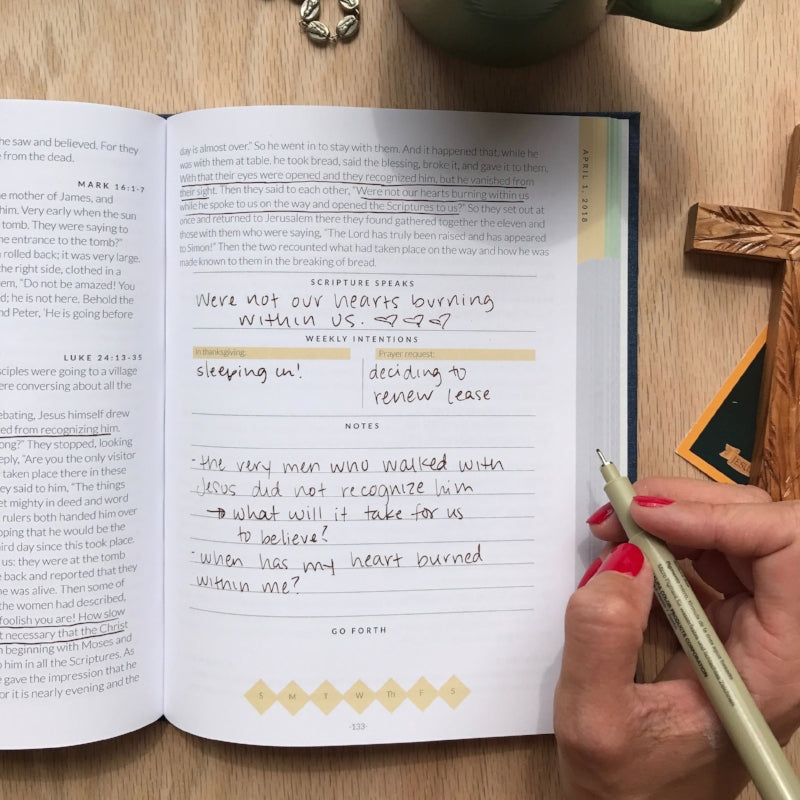 he saw and believed. For they
from the dead.
MARK 16:1-7
mother of James, and
him. Very early when the sun
tomb. They were saying to
e entrance to the tomb?"
rolled back; it was very large.
the right side, clothed in a
em, "Do not be amazed! You
d; he is not here. Behold the
nd Peter, 'He is going before
LUKE 24:13-35
sciples were going to a village
ere conversing about all the
ebating, Jesus himself drew
ed from recognizing him.
ong?" They stopped, looking
eply, "Are you the only visitor
taken place there in these
ey said to him, "The things
et mighty in deed and word
rulers both handed him over
oping that he would be the
ird day since this took place.
us: they were at the tomb
back and reported that they
he was alive. Then some of
the women had described,
foolish you are! How slow
t necessary that the Christ
n beginning with Moses and
o him in all the Scriptures. As
e gave the impression that he
or it is nearly evening and the
day is almost over." So he went in to stay with them. And it happened that, while he
was with them at table, he took bread, said the blessing, broke it, and gave it to them.
With that their eyes were opened and they recognized him, but he vanished from
their sight. Then they said to each other, "Were not our hearts burning within us
while he spoke to us on the way and opened the Scriptures to us?" So they set out at
once and returned to Jerusalem where they found gathered together the eleven and
those with them who were saying, "The Lord has truly been raised and has appeared
to Simon!" Then the two recounted what had taken place on the way and how he was
made known to them in the breaking of bread.
APRIL 1, 2018
SCRIPTURE SPEAKS
Were not our hearts burning
within us.
WEEKLY INTENTIONS
In thanksgiving: Prayer request:
sleeping in! deciding to
renew lease
NOTES
- the very men who walked with
Jesus did not recognize him
→ what will it take for us
to believe?
- when has my heart burned
within me?
GO FORTH
S M T W Th F S
-133-